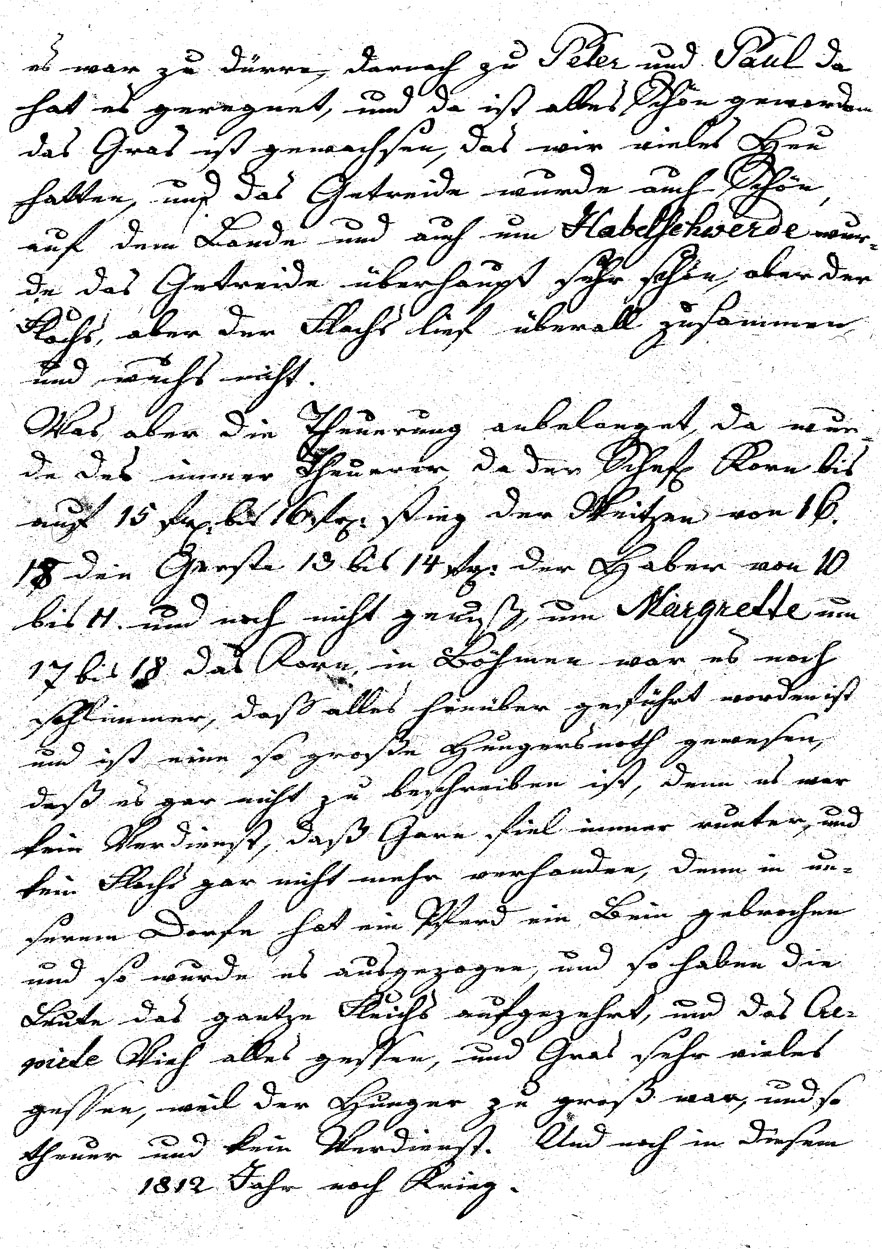 es war zu dürre, darnach zu Peter und Paul da
hat es geregnet, und da ist alles Schön geworden
das Gras ist gewachsen, das wir vieles Heu
hatten, und das Getreide wurde auch Schön,
auf dem Lande und auch um Habelschwerde wur-
de das Getreide überhaupt sehr schön, aber der
Flachs, aber der Flachs lief überall zusammen
und wuchs nicht.
Was aber die Theuerung anbelanget, da wur-
de des immer Theuerer, da der Schefl Korn bis
auf 15 bis 16 stieg der Weitzen von 16.
18 die Gerste 13 bis 14 der Haber von 10
bis 11. und noch nicht genug, um Margrette um
17 bis 18 das Korn, in Böhmen war es noch
schlimmer, daß alles herüber geführt worden ist
und ist eine so große Hungersnoth gewesen,
daß es gar nicht zu beschreiben ist, denn es war
kein Verdienst, daß Garn fiel immer runter, und
kein Flachs gar nicht mehr verhanden, denn in un-
serem Dorfe hat ein Pferd ein Bein gebrochen
und so wurde es ausgezogen, und so haben die
Leute das gantze Fleich aufgezehrt, und das Cre-
pirte Vieh alles gessen, und Gras sehr vieles
gessen, weil der Hunger zu groß war, und so
theuer und kein Verdienst. Und noch in diesem
1812 Jahr noch Krieg.